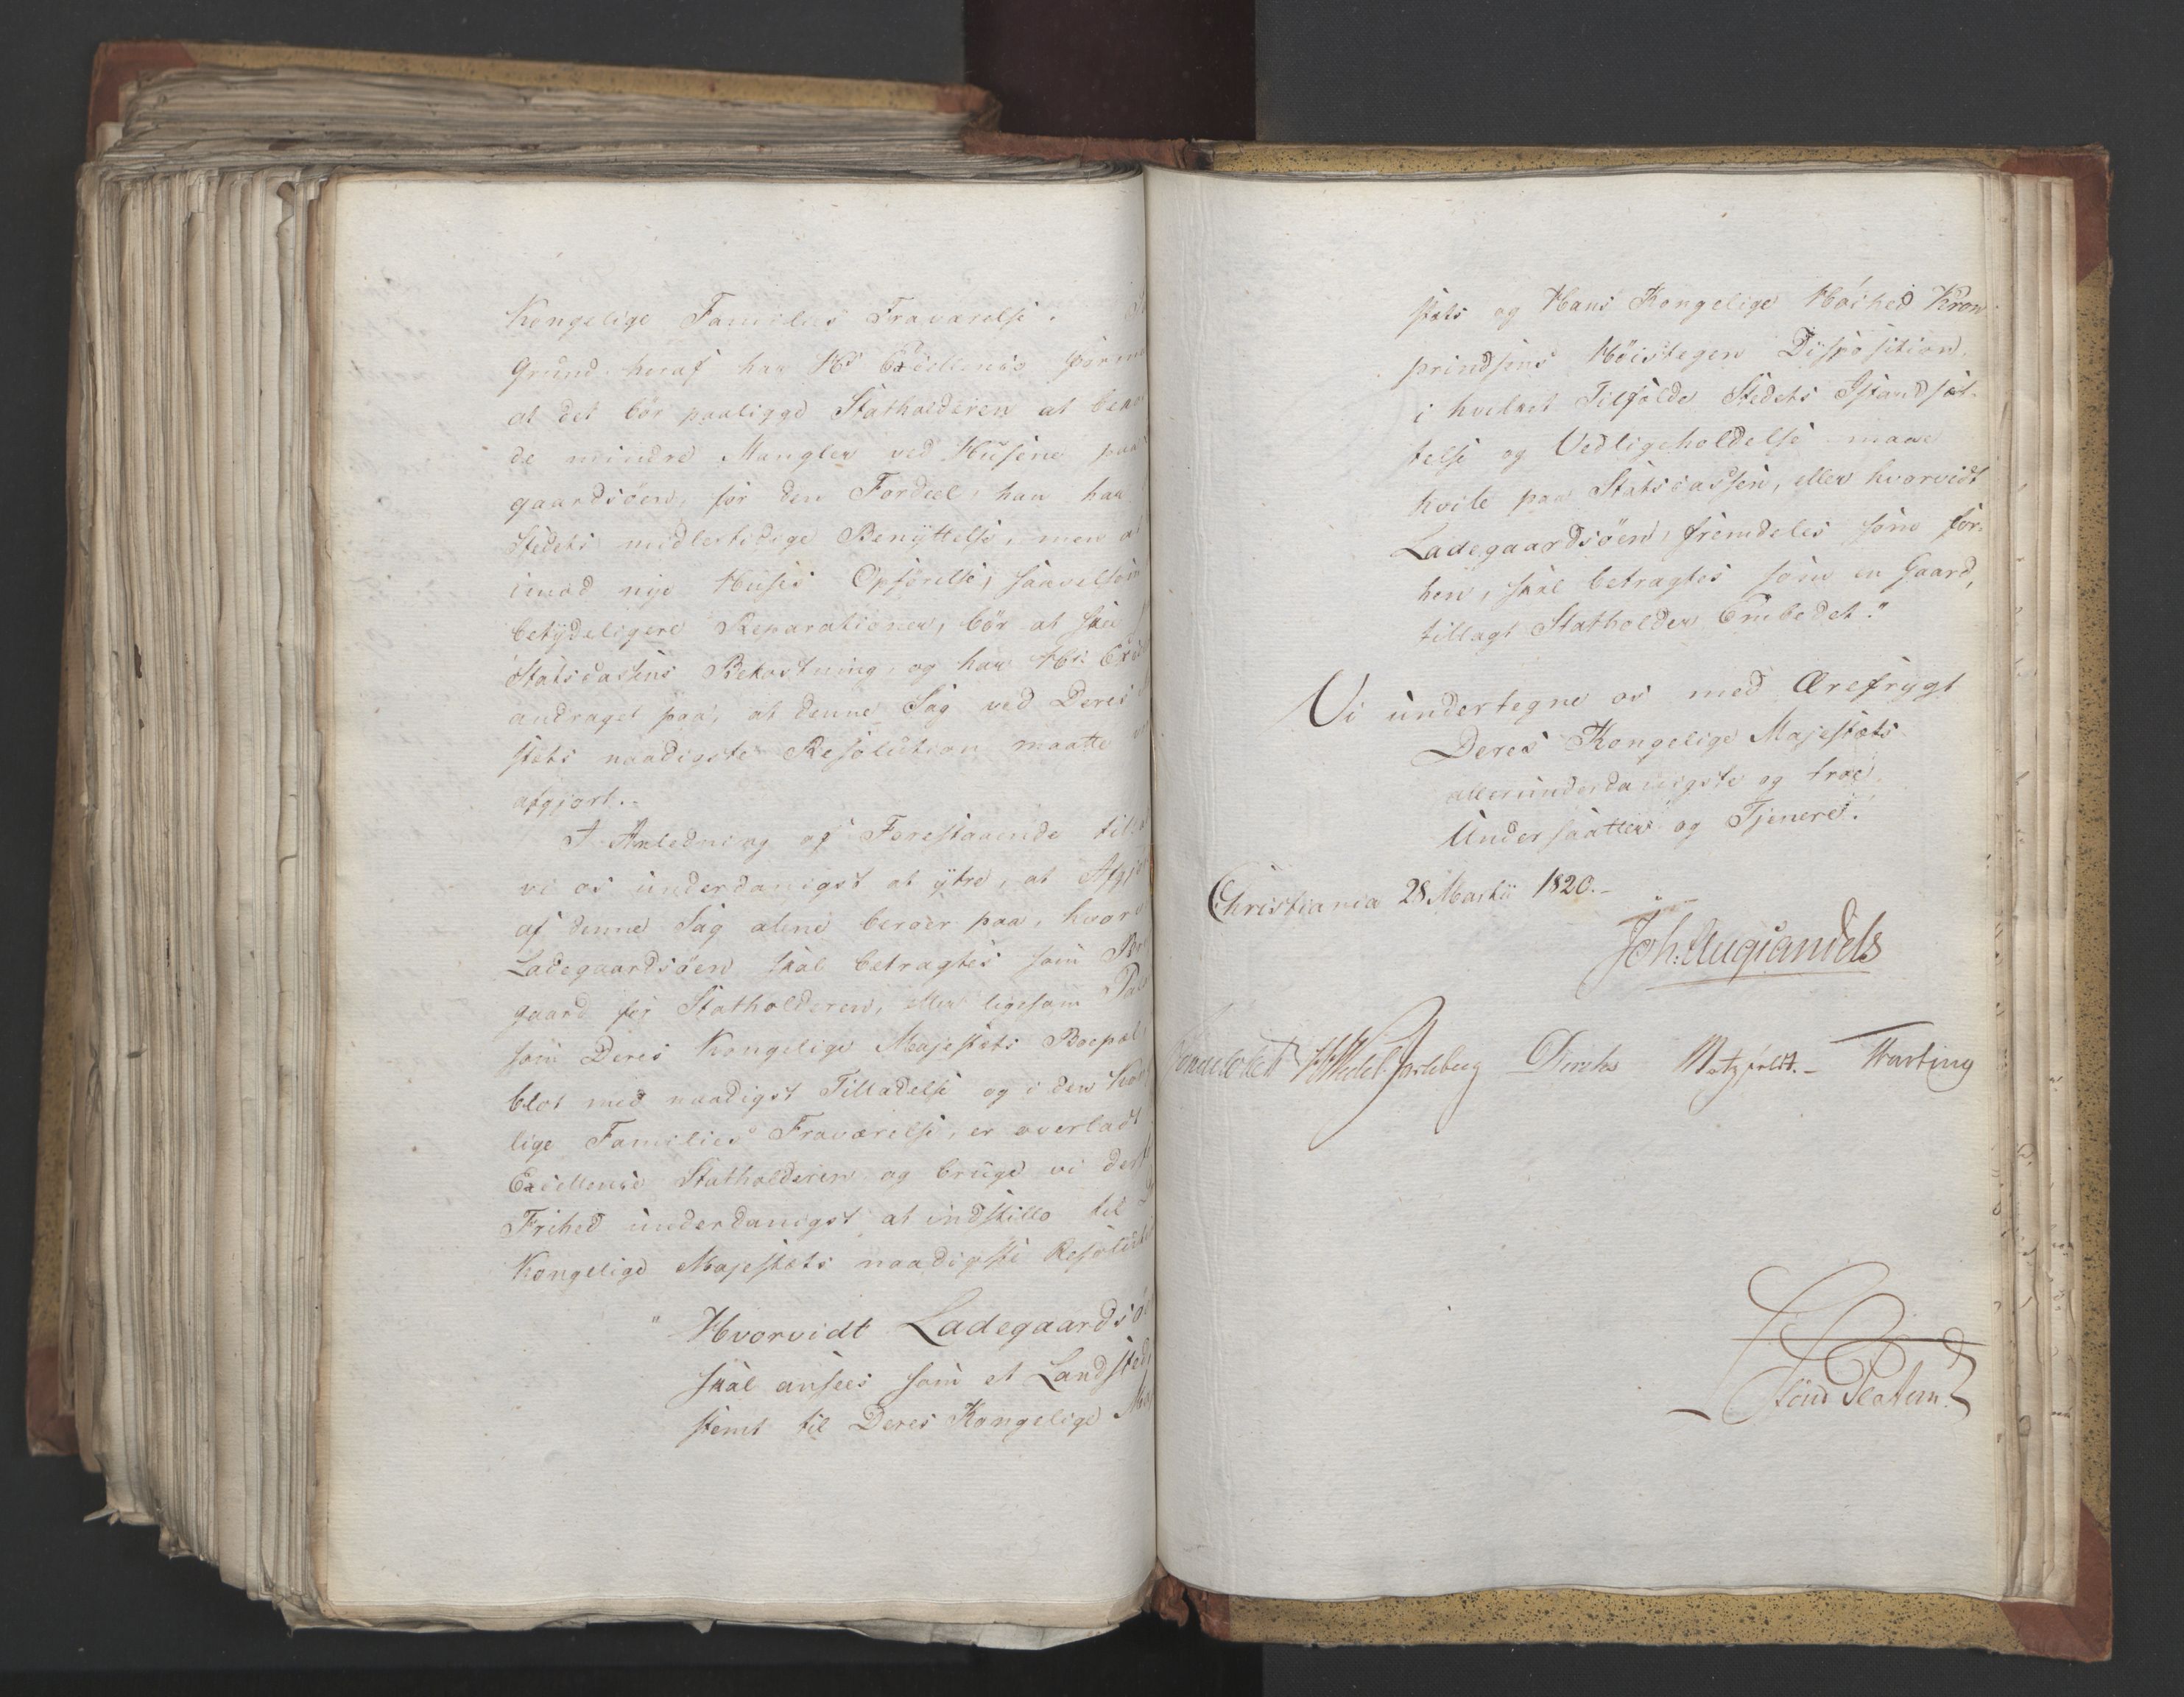 Kongelige Families Fraværelse.
Grund heraf har Hs Excellence
at det bør paaligge Statholderen at
de mindre Mangler ved Husene paa
gaardsöen, for den Fordeel, han har
Stedets midlertidige Benyttelse, men
imod nye Huses Opförelse, saavelsom
betydeligere Reparationer, bör at skee
Statscassens Bekostning, og har Hs
andraget paa, at denne Sag ved Deres
stæts naadigste Resolution maatte
afgjort.
I Anledning af Forestaaende
vi os underdanigst at ytre, at
af denne Sag alene beroer paa,
Ladegaardsöen skal betragtes som
gaard for Statholderen, eller ligesom
som Deres Kongelige Majestæts Boepæl,
blot med naadigst Tilladelse og i den
lige Families Fraværelse, er overladt
Excellence Statholderen og bruge vi
Frihed underdanigst at indstille til
Kongelige Majestæts naadigste
" Hvorvidt Ladegaardsö
skal ansees som et Landsted,
stemt til Deres Kongelige
stæts og Hans Kongelige Höihed Kron
prindsens Höistegen Disposition,
i hvilket Tilfælde Stedets Istandsæt-
telse og Vedligeholdelse maae
hvile paa Statscassen, eller hvorvidt
Ladegaardsöen, fremdeles som for-
hen, skal betragtes som en Gaard,
tillagt Statholder Embedet."
Vi undertegne os med Ærefrygt
Deres Kongelige Majestæts
allerunderdanigste og troe
Undersaatter og Tjenere.
Christiania 28 Martii 1820.-
Joh: Aug: Sandels
Sommerhielm HWedel Jarlsberg Diriks Motzfeldt.- Fasting